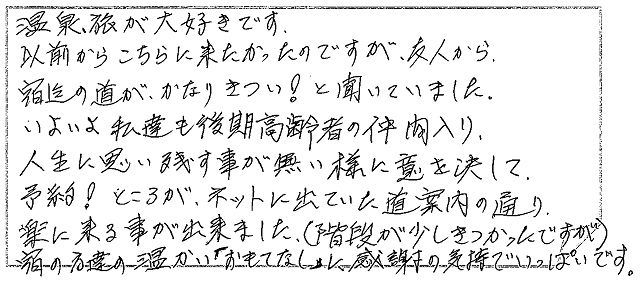 温泉、旅が大好きです。
以前からこちらに来たかったのですが、友人から、
宿迄の道が、かなりきつい!と聞いていました。
いよいよ私達も後期高齢者の仲間入り、
人生に思い残す事が無い様に意を決して、
予約!ところが、ネットに出ていた道案内の通り、
楽に来る事が出来ました、(階段が少しきつかったですが)
宿の方達の温かい"おもてなし"に、感謝の気持でいっぱいです。